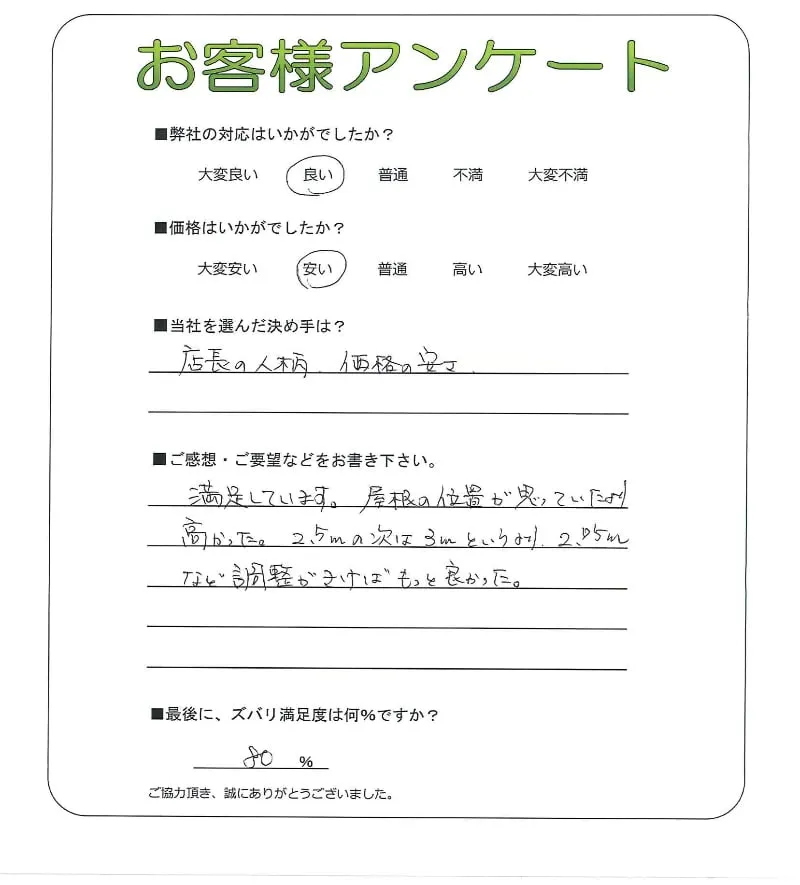 お客様アンケート
■弊社の対応はいかがでしたか?
大変良い 良い 普通 不満 大変不満
■価格はいかがでしたか?
大変安い 安い 普通 高い 大変高い
■当社を選んだ決め手は?
店長の人柄、価格の安さ、
■ご感想・ご要望などをお書き下さい。
満足しています。屋根の位置が思っていたより
高かった。2.5mの次は3mというより、2.75m
など調整ができればもっと良かった。
■最後に、ズバリ満足度は何%ですか?
80 %
ご協力頂き、誠にありがとうございました。